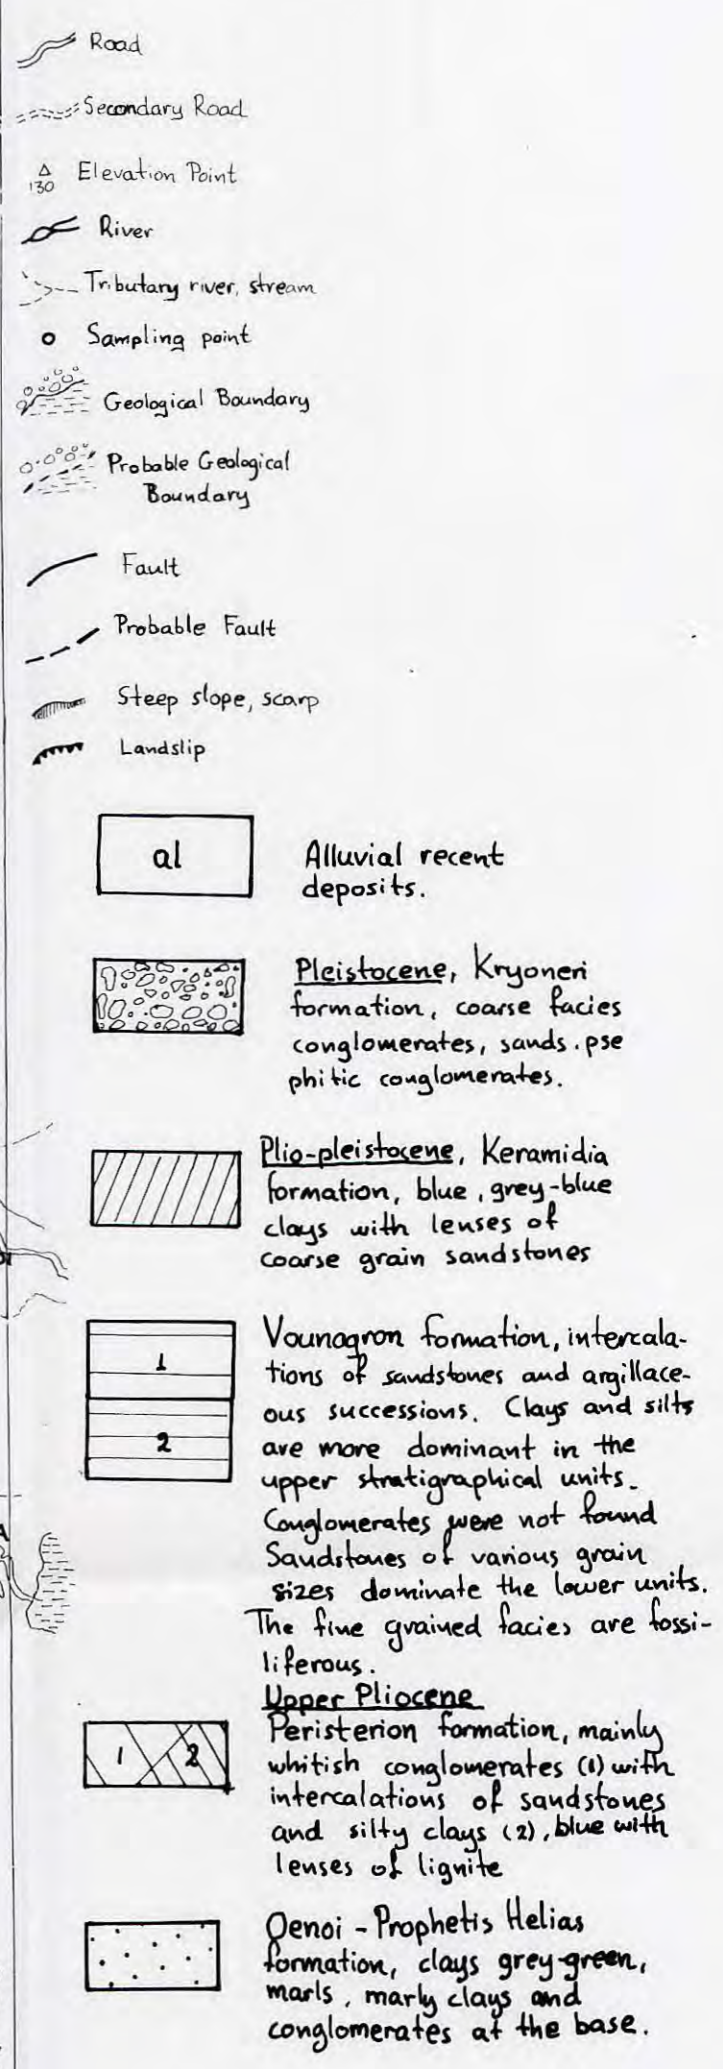 Road
Secondary Road
130
Elevation Point
River
Tributary river, stream
Sampling point
Geological Boundary
Probable Geological
Boundary
Fault
Probable Fault
Steep slope, scarp
Landslip
al
Alluvial recent
deposits.
Pleistocene, Kryoneri
formation, coarse facies
conglomerates, sands.pse
phitic conglomerates.
Plio-pleistocene, Keramidia
formation, blue, grey-blue
clays with lenses of
coarse grain sandstones
1
2
Vounagron formation, intercala-
tions of sandstones and argillace-
ous successions. Clays and silts
are more dominant in the
upper stratigraphical units.
Conglomerates were not found
Sandstones of various grain
sizes dominate the lower units.
The fine grained facies are fossi-
liferous.
Upper Pliocene
1 2
Peristerion formation, mainly
whitish conglomerates (1) with
intercalations of sandstones
and silty clays (2), blue with
lenses of lignite
Oenoi - Prophetis Helias
formation, clays grey-green,
marls, marly clays and
conglomerates at the base.